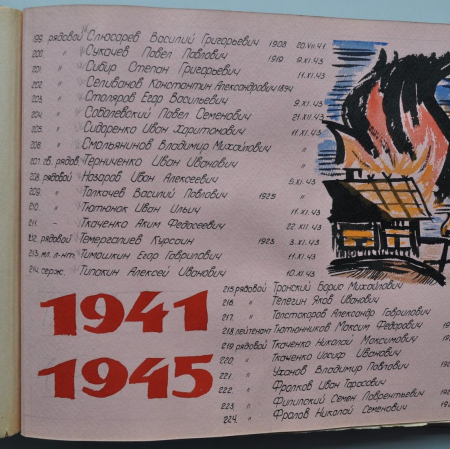 199. рядовой Слюсарев Василий Григорьевич 1908 20.VII.41
200. " Сукачев Павел Павлович 1919 9.XI.43
201. " Сивир Степан Григорьевич 11.XI.43
202. " Селиванов Константин Александрович 1894
203. " Столяров Егор Васильевич 9.XI.43
204. " Соболевский Павел Семенович 21.XII.43
205. " Сидоренко Иван Харитонович 11.XI.43
206. " Смольянинов Владимир Михайлович "
207. гв. рядов. Терниченко Иван Иванович "
208. рядовой Назаров Иван Алексеевич 5.XI.43
209. " Толкачев Василий Павлович 1925 "
210. " Тютюнок Иван Ильич 11.XI.43
211. – Ткаченко Аким Федосеевич 22.XII.43
212. рядовой Темергалиев Курсаин 1923 3.XI.43
213. мл. л-нт. Тимошкин Егор Гаврилович 11.XI.43
214. серж. Типакин Алексей Иванович 10.XI.43
215. рядовой Тронский Борис Михайлович
216. " Телегин Яков Иванович
217. " Толстокаров Александр Гаврилович
218. лейтенант Тютюнников Максим Федорович
219. рядовой Ткаченко Николай Максимович
220. " Ткаченко Иосиф Иванович
221. " Уханов Владимир Павлович
222. " Фролков Иван Тарасович
223. " Филипский Семен Лаврентьевич
224. " Фролов Николай Семенович
1941
1945